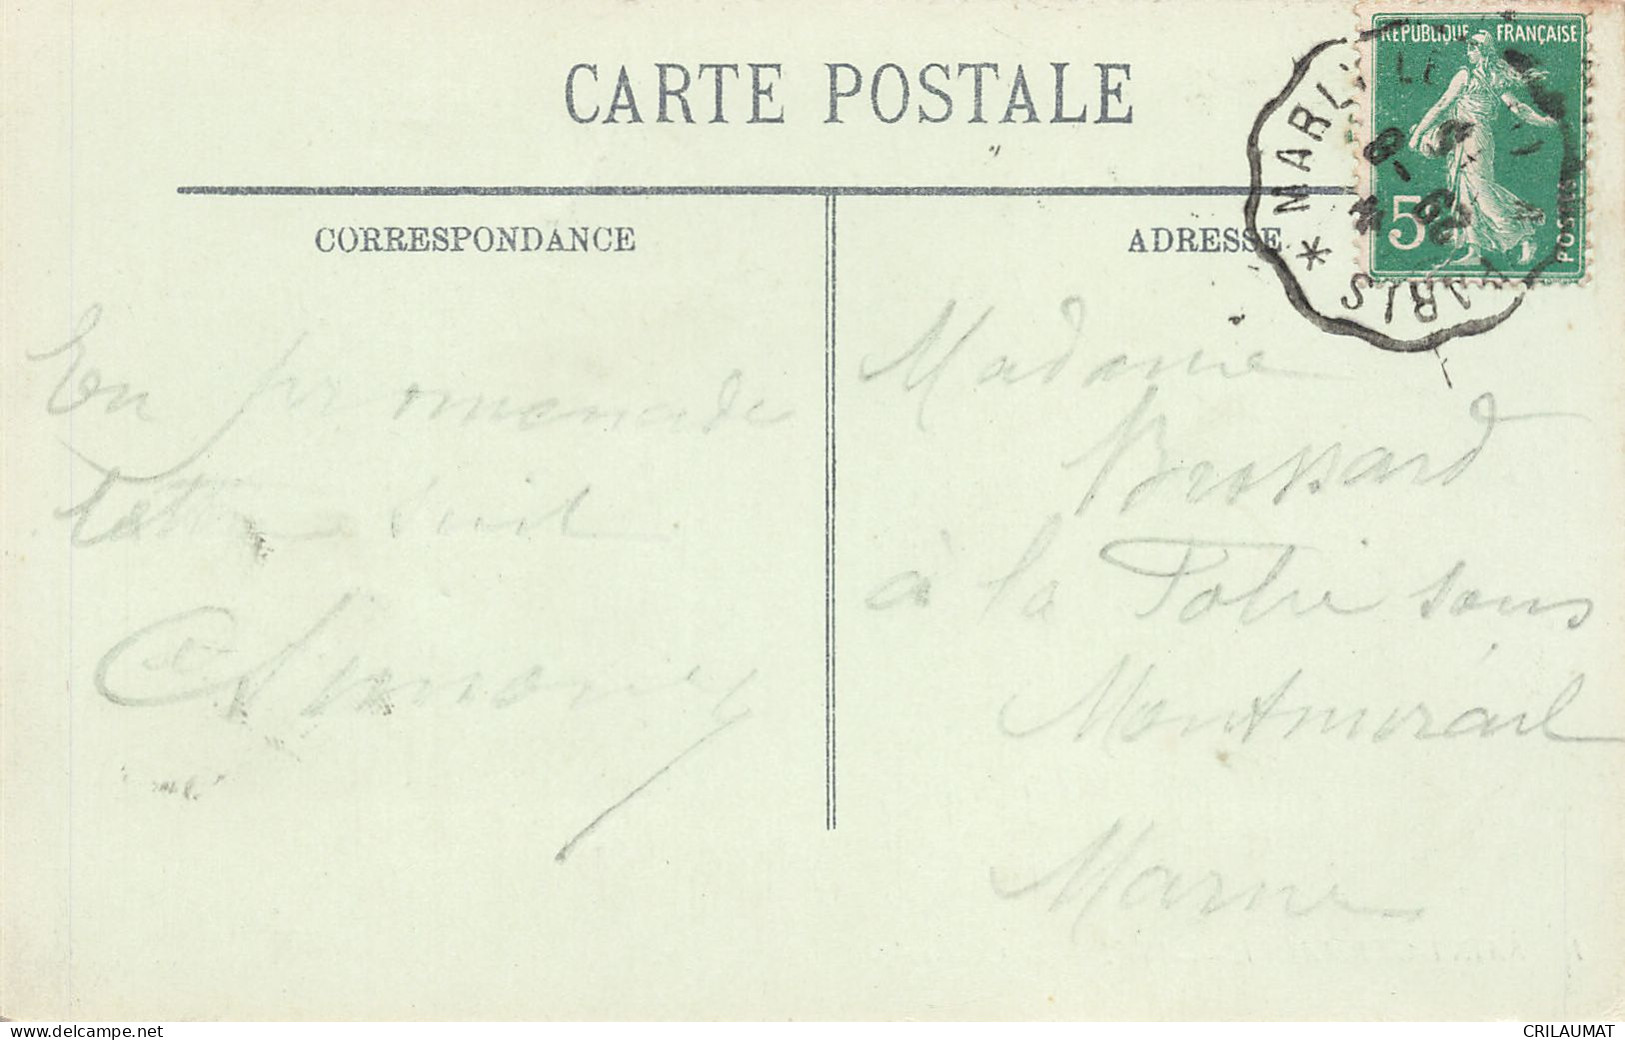 CARTE POSTALE
CORRESPONDANCE
ADRESSE
RÉPUBLIQUE FRANÇAISE
5c
POSTES
* MARLY LE
PARIS
8 - 5
29
En promenade
lettre suit
Simone
Madame
Brossard
à la Folie sous
Montmirail
Marne
www.delcampe.net
CRILAUMAT